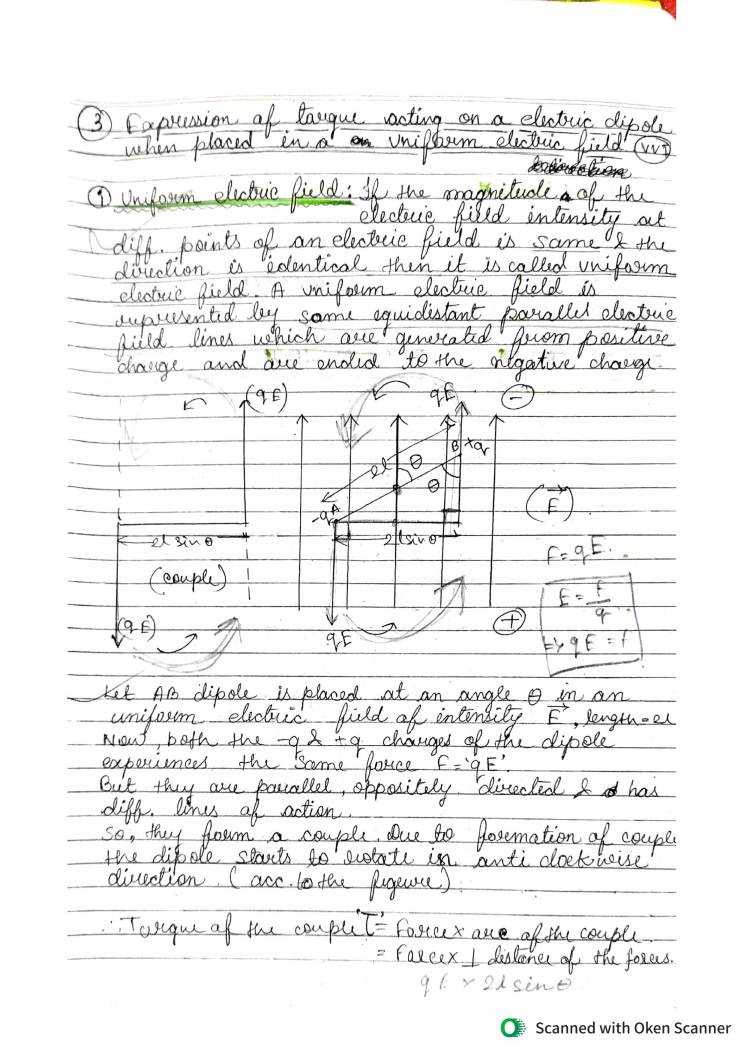 ③ Expression of torque acting on a electric dipole
when placed in a uniform electric field (VVI)
① Uniform electric field: If the magnitude of the
electric field intensity at
diff. points of an electric field is same & the
direction is identical then it is called uniform
electric field. A uniform electric field is
represented by some equidistant parallel electric
field lines which are generated from positive
charge and are ended to the negative charge.
(qE)
qE
−
B +q
2l
θ
θ
-q A
(E⃗)
2l sinθ
2l sinθ
(couple)
F = qE.
E = F/q
=> qE = F
(qE)
qE
+
Let AB dipole is placed at an angle θ in an
uniform electric field of intensity E⃗, length = 2l
Now, both the -q & +q charges of the dipole
experiences the same force F = 'qE'.
But they are parallel, oppositely directed & has
diff. lines of action.
So, they form a couple. Due to formation of couple
the dipole starts to rotate in anti clockwise
direction. (acc. to the figure)
∴ Torque of the couple 'τ' = Force x arc of the couple.
= Force x ⊥ distance of the forces.
qE x 2l sinθ
Scanned with Oken Scanner